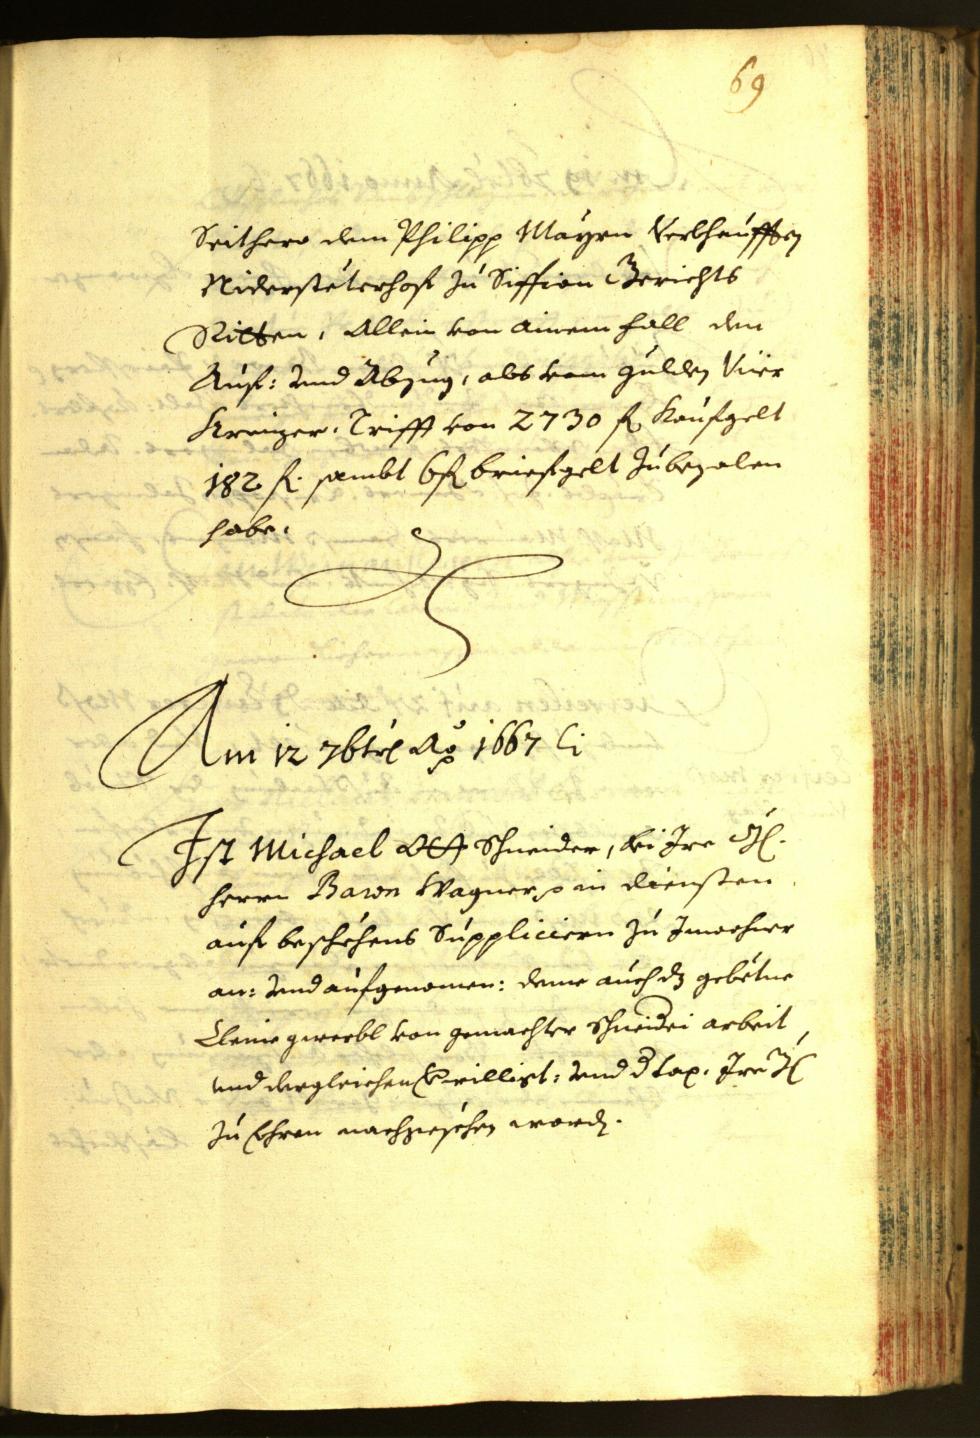 69
Seithero dem Philipp Mayrn verkhaufften
Niderstëterhof zu Siffian Gerichts
Ritten, Allein von ainem fall den
Auf: und Abzug, als vom gulden Vier
Kreizer. Trifft von 2730 f. Kaufgelt
182 f. sambt 6 f briefgelt zubezalen
habe.
Am 12 7btris Ao 1667
Ist Michael Ott Schneider, bei Ire
herrn Baron Wagner in diensten
auf beschehens Suppliciern zu Inwohner
an: und aufgenomen: deme auch dz gebëtne
Cleine gwerbl von gemachter Schneidri arbeit,
und dergleichen verwilligt: und d tax. Ire
zu Ehren nachgesëhen word.